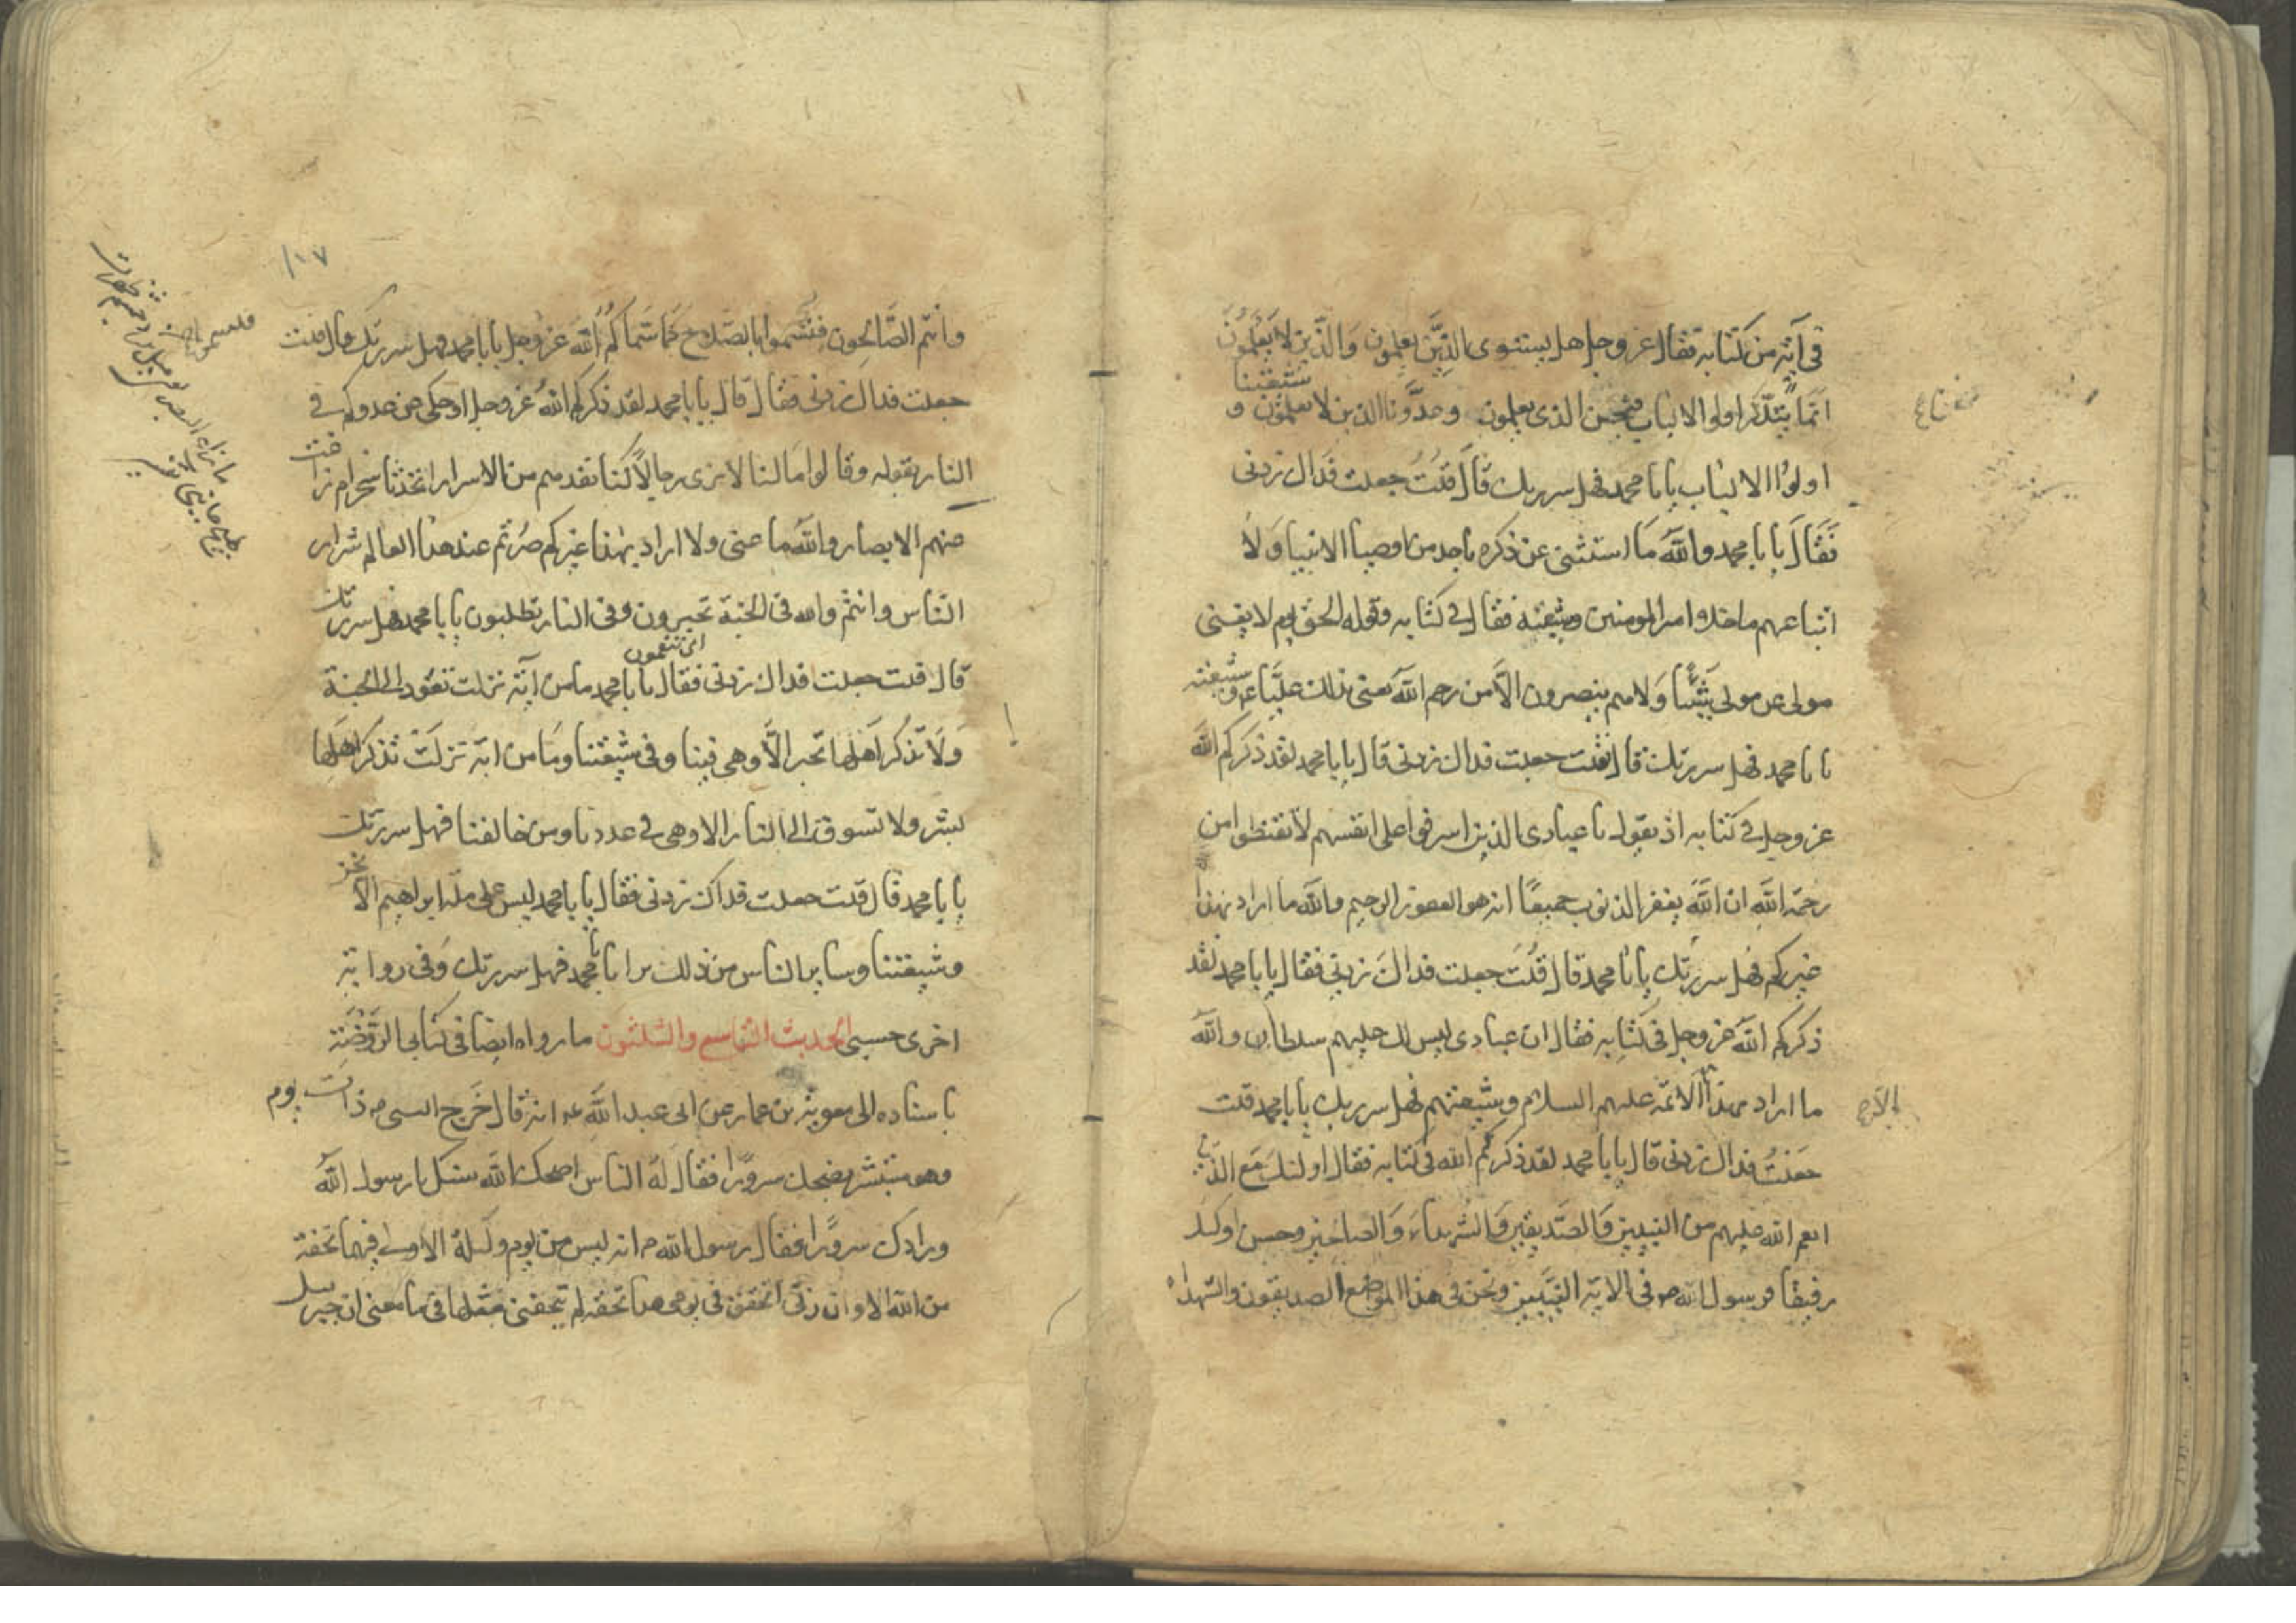 في آية من كتابه فقال عز وجل هل يستوى الذين يعلمون والذين لا يعلمون
انما يتذكر اولوا الالباب فنحن الذى يعلمون وعدونا الذين لا يعلمون و شيعتنا
اولوا الالباب يابا محمد فهل سررتك قال قلت جعلت فداك زدنى
فقال يابا محمد والله ما استثنى عن ذكره باحد من اوصيا الانبيا ولا
اتباعهم ما خلا امير المومنين وشيعته فقال في كتابه وقوله الحق يوم لا يغنى
مولى عن مولى شيئا ولا هم ينصرون الا من رحم الله يعنى بذلك عليا ع وشيعته
يابا محمد فهل سررتك قال قلت جعلت فداك زدنى قال يابا محمد لقد ذكركم الله
عز وجل في كتابه اذ يقول يا عبادى الذين اسرفوا على انفسهم لا تقنطوا من
رحمة الله ان الله يغفر الذنوب جميعا انه هو الغفور الرحيم والله ما اراد بهذا
غيركم فهل سررتك يابا محمد قال قلت جعلت فداك زدنى فقال يابا محمد لقد
ذكركم الله عز وجل فى كتابه فقال ان عبادى ليس لك عليهم سلطان والله
ما اراد بهذا الائمة عليهم السلام وشيعتهم فهل سررتك يابا محمد قلت
الا
جعلت فداك زدنى قال يابا محمد لقد ذكركم الله فى كتابه فقال اولئك مع الذين
انعم الله عليهم من النبيين والصديقين والشهداء والصالحين وحسن اولئك
رفيقا فرسول الله ص فى الاية النبيين ونحن فى هذا الموضع الصديقون والشهداء
١٠٧
وانتم الصالحون فتسموا بالصلاح كما سماكم الله عز وجل يابا محمد فهل سررتك قال قلت
جعلت فداك زدنى فقال قال يابا محمد لقد ذكركم الله عز وجل اذ حكى عن عدوكم في
النار بقوله وقالوا ما لنا لا نرى رجالا كنا نعدهم من الاسرار اتخذنا سخرا ام زاغت
عنهم الابصار والله ما عنى ولا اراد بهذا غيركم صرتم عند هذا العالم شرار
الناس وانتم والله فى الجنة تحبرون وفى النار تطلبون يابا محمد فهل سررتك
اى تنعمون
قال قلت جعلت فداك زدنى فقال يابا محمد ما من آية نزلت تقود الى الجنة
ولا تذكر اهلها بخير الا وهى فينا وفى شيعتنا وما من اية نزلت تذكر اهلها
بشر ولا تسوق الى النار الا وهى في عدونا ومن خالفنا فهل سررتك
يابا محمد قال قلت جعلت فداك زدنى فقال يابا محمد ليس على ملة ابراهيم الا نحن
وشيعتنا وساير الناس من ذلك برا يابا محمد فهل سررتك وفى رواية
اخرى حسبى الحديث التاسع والثلثون ما رواه ايضا فى كتاب الروضة
باسناده الى معوية بن عمار عن ابى عبد الله ع انه قال خرج النبى ص ذات يوم
وهو مستبشر يضحك سرورا فقال له الناس اضحك الله سنك يا رسول الله
وزادك سرورا فقال رسول الله ص انه ليس من يوم ولا ليلة الا ولى فيهما تحفة
من الله الا وان ربى اتحفنى فى يومى هذا تحفة لم يتحفنى بمثلها فى ما معنى ان جبرئيل